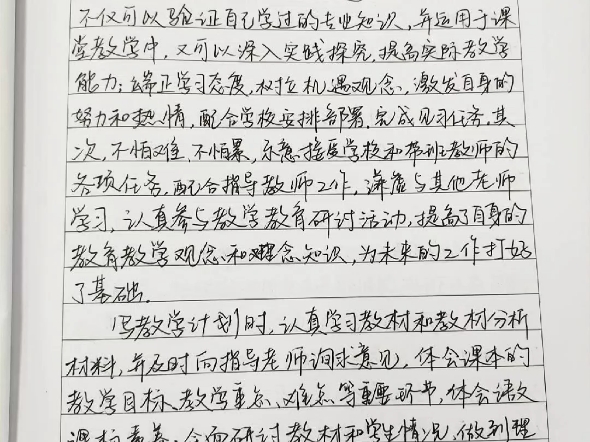 不仅可以验证自己学过的专业知识，并运用于课
堂教学中，又可以深入实践探究，提高实际教学
能力；端正学习态度，树立机遇观念，激发自身的
努力和热情，配合学校安排部署，完成见习任务。其
次，不怕难、不怕累，乐意接受学校和带班教师的
各项任务。配合指导教师工作，谦虚与其他老师
学习，认真参与教学教育研讨活动，提高了自身的
教育教学观念和理念知识，为未来的工作打好
了基础。
写教学计划时，认真学习教材和教材分析
材料，并及时向指导老师询求意见，体会课本的
教学目标、教学重点、难点等重要环节，体会语文
课标素养，全面研讨教材和学生情况，做到理